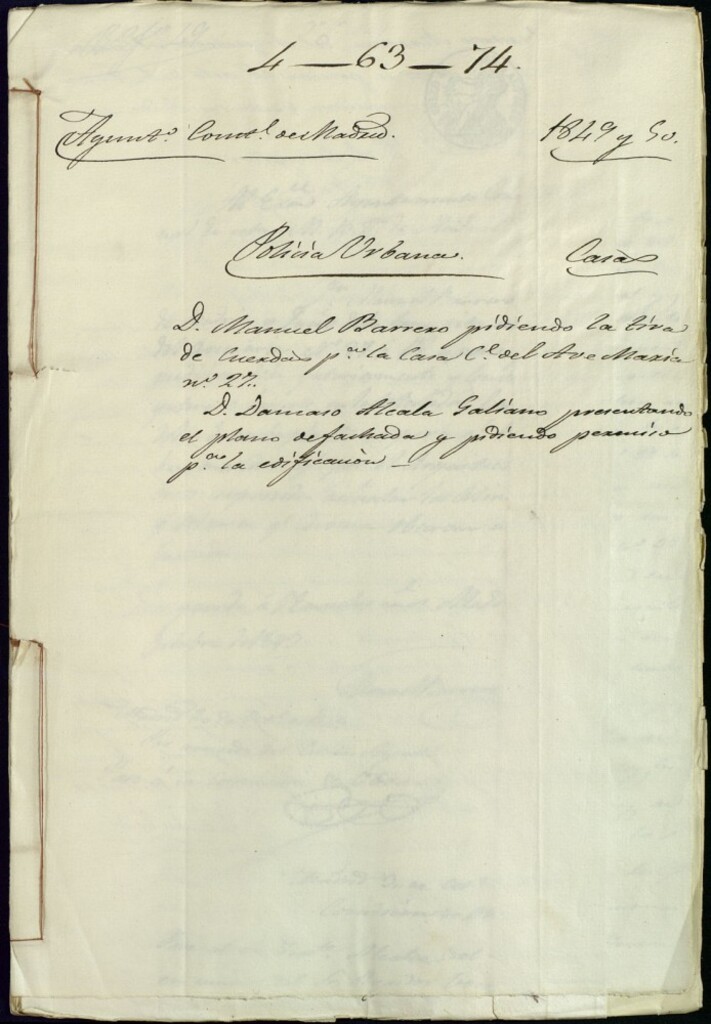 4—63—74.
Ayunt.o Const.l de Madrid.
1849 y 50.
Policia Urbana.
Casas
D. Manuel Barrero pidiendo la tira
de Cuerdas p.a la Casa C.e del Ave Maria
n.o 27.
D. Damaso Alcala Galiano presentando
el plano de fachada y pidiendo permiso
p.a la edificacion —